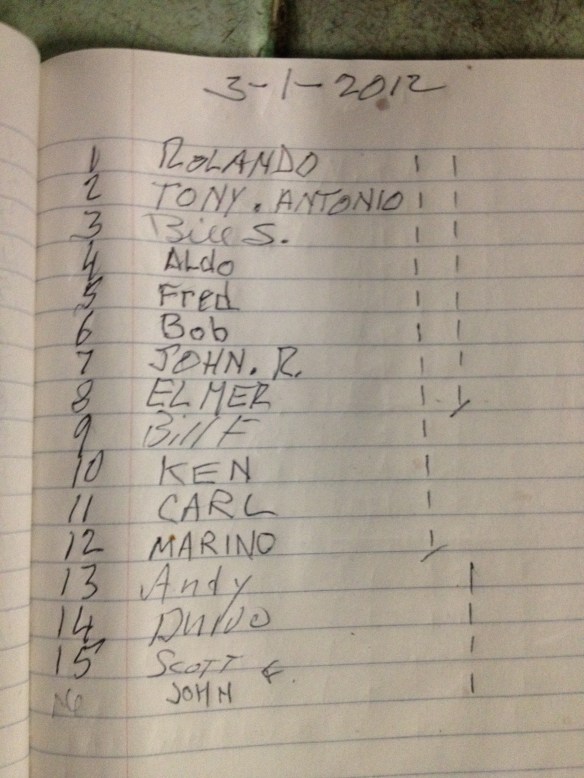 3-1-2012
1 ROLANDO | |
2 TONY. ANTONIO | |
3 Bill S. | |
4 ALdo | |
5 Fred | |
6 Bob | |
7 JOHN. R. | |
8 ELMER | |
9 Bill F |
10 KEN |
11 CARL |
12 MARINO |
13 Andy |
14 |
15 SCOTT |
16 JOHN |